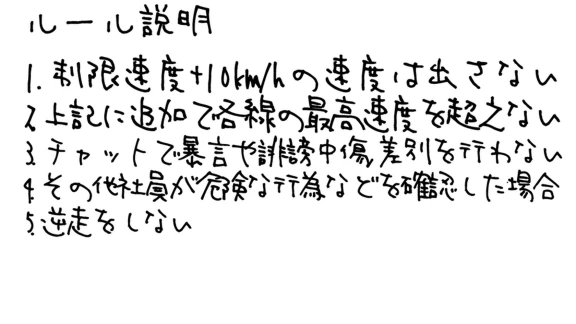 ルール説明
1. 制限速度+10km/hの速度は出さない
2. 上記に追加で各線の最高速度を超えない
3. チャットで暴言や誹謗中傷,差別を行わない
4. その他社員が危険な行為などを確認した場合
5. 逆走をしない